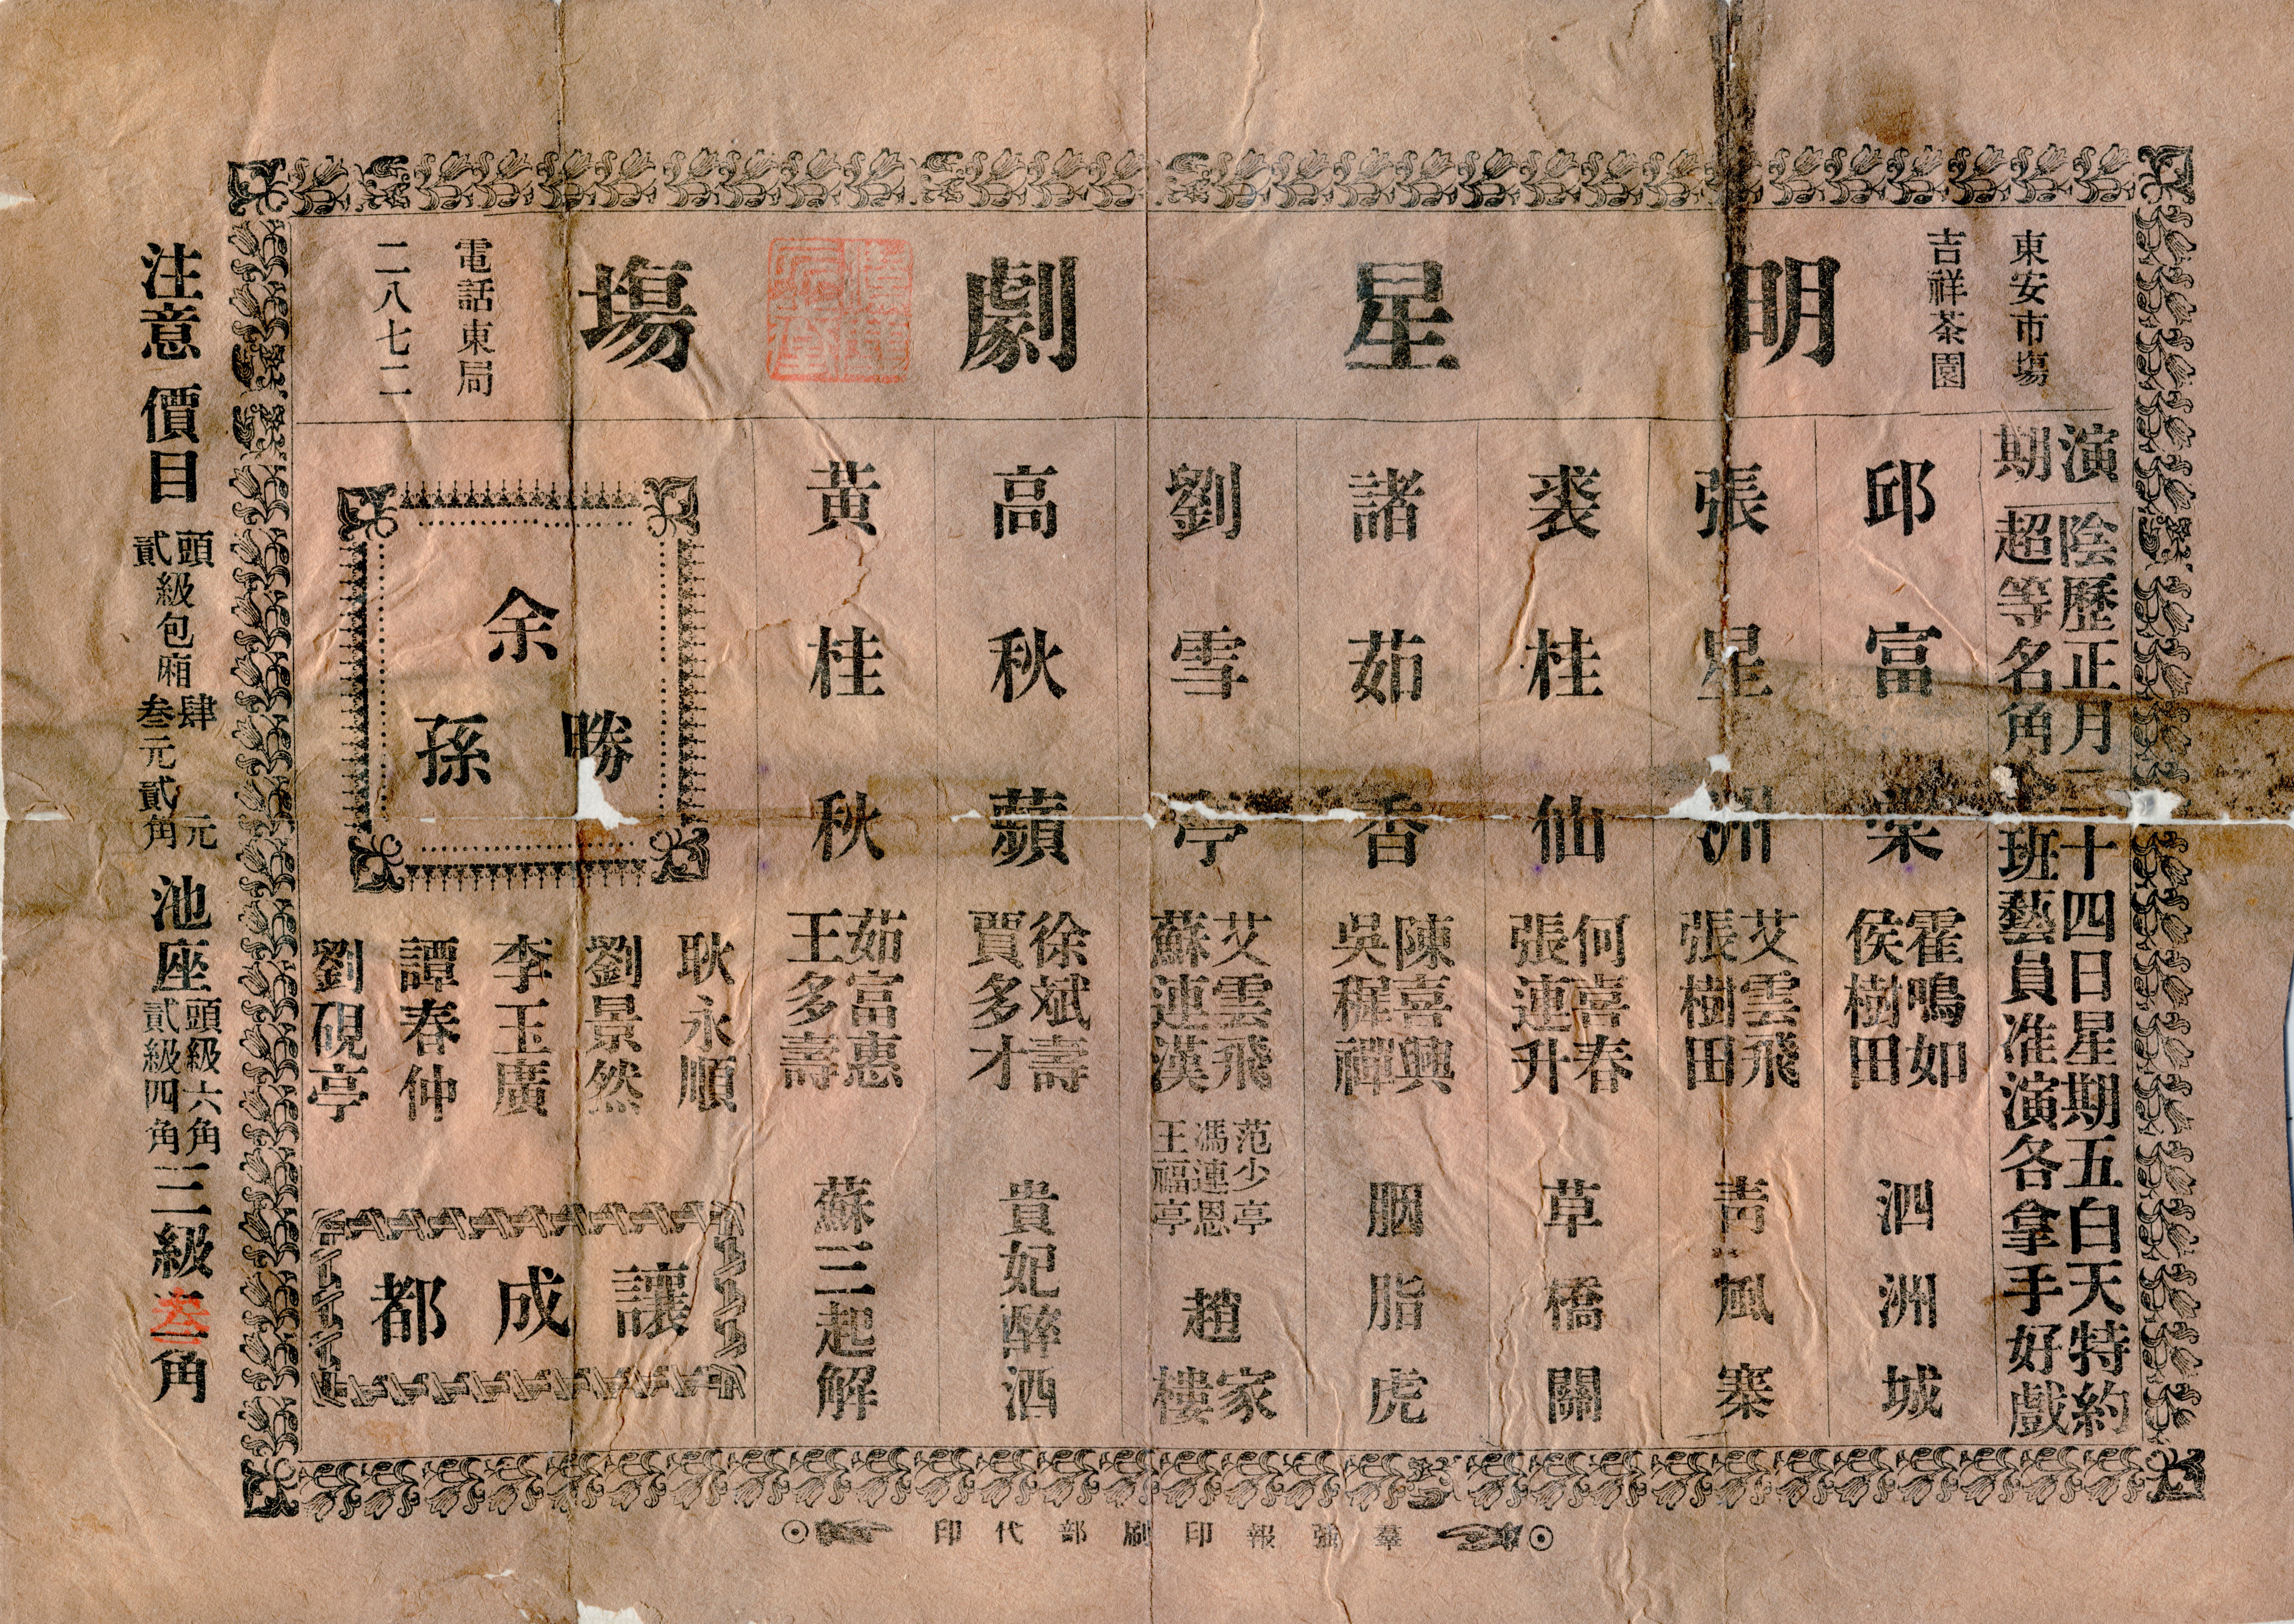 東安市塲
吉祥茶園
明星劇塲
電話東局
二八七二
演期
陰歷正月二十四日星期五白天特約
超等名角 班藝員准演各拿手好戲
邱富棠
霍鳴如
侯樹田
泗洲城
張星洲
艾雲飛
張樹田
青風寨
裘桂仙
何喜春
張連升
草橋關
諸茹香
陳喜興
吳穉禪
胭脂虎
劉雪亭
艾雲飛
蘇連漢
范少亭
馮連恩
王福亭
趙家樓
高秋蘋
徐斌壽
賈多才
貴妃醉酒
黃桂秋
茹富惠
王多壽
蘇三起解
余勝孫
耿永順
劉景然
李玉廣
譚春仲
劉硯亭
讓成都
注意 價目
頭貳級包廂
肆元
叁元貳角
池座
頭級六角
貳級四角
三級叁角
羣強報印刷部代印